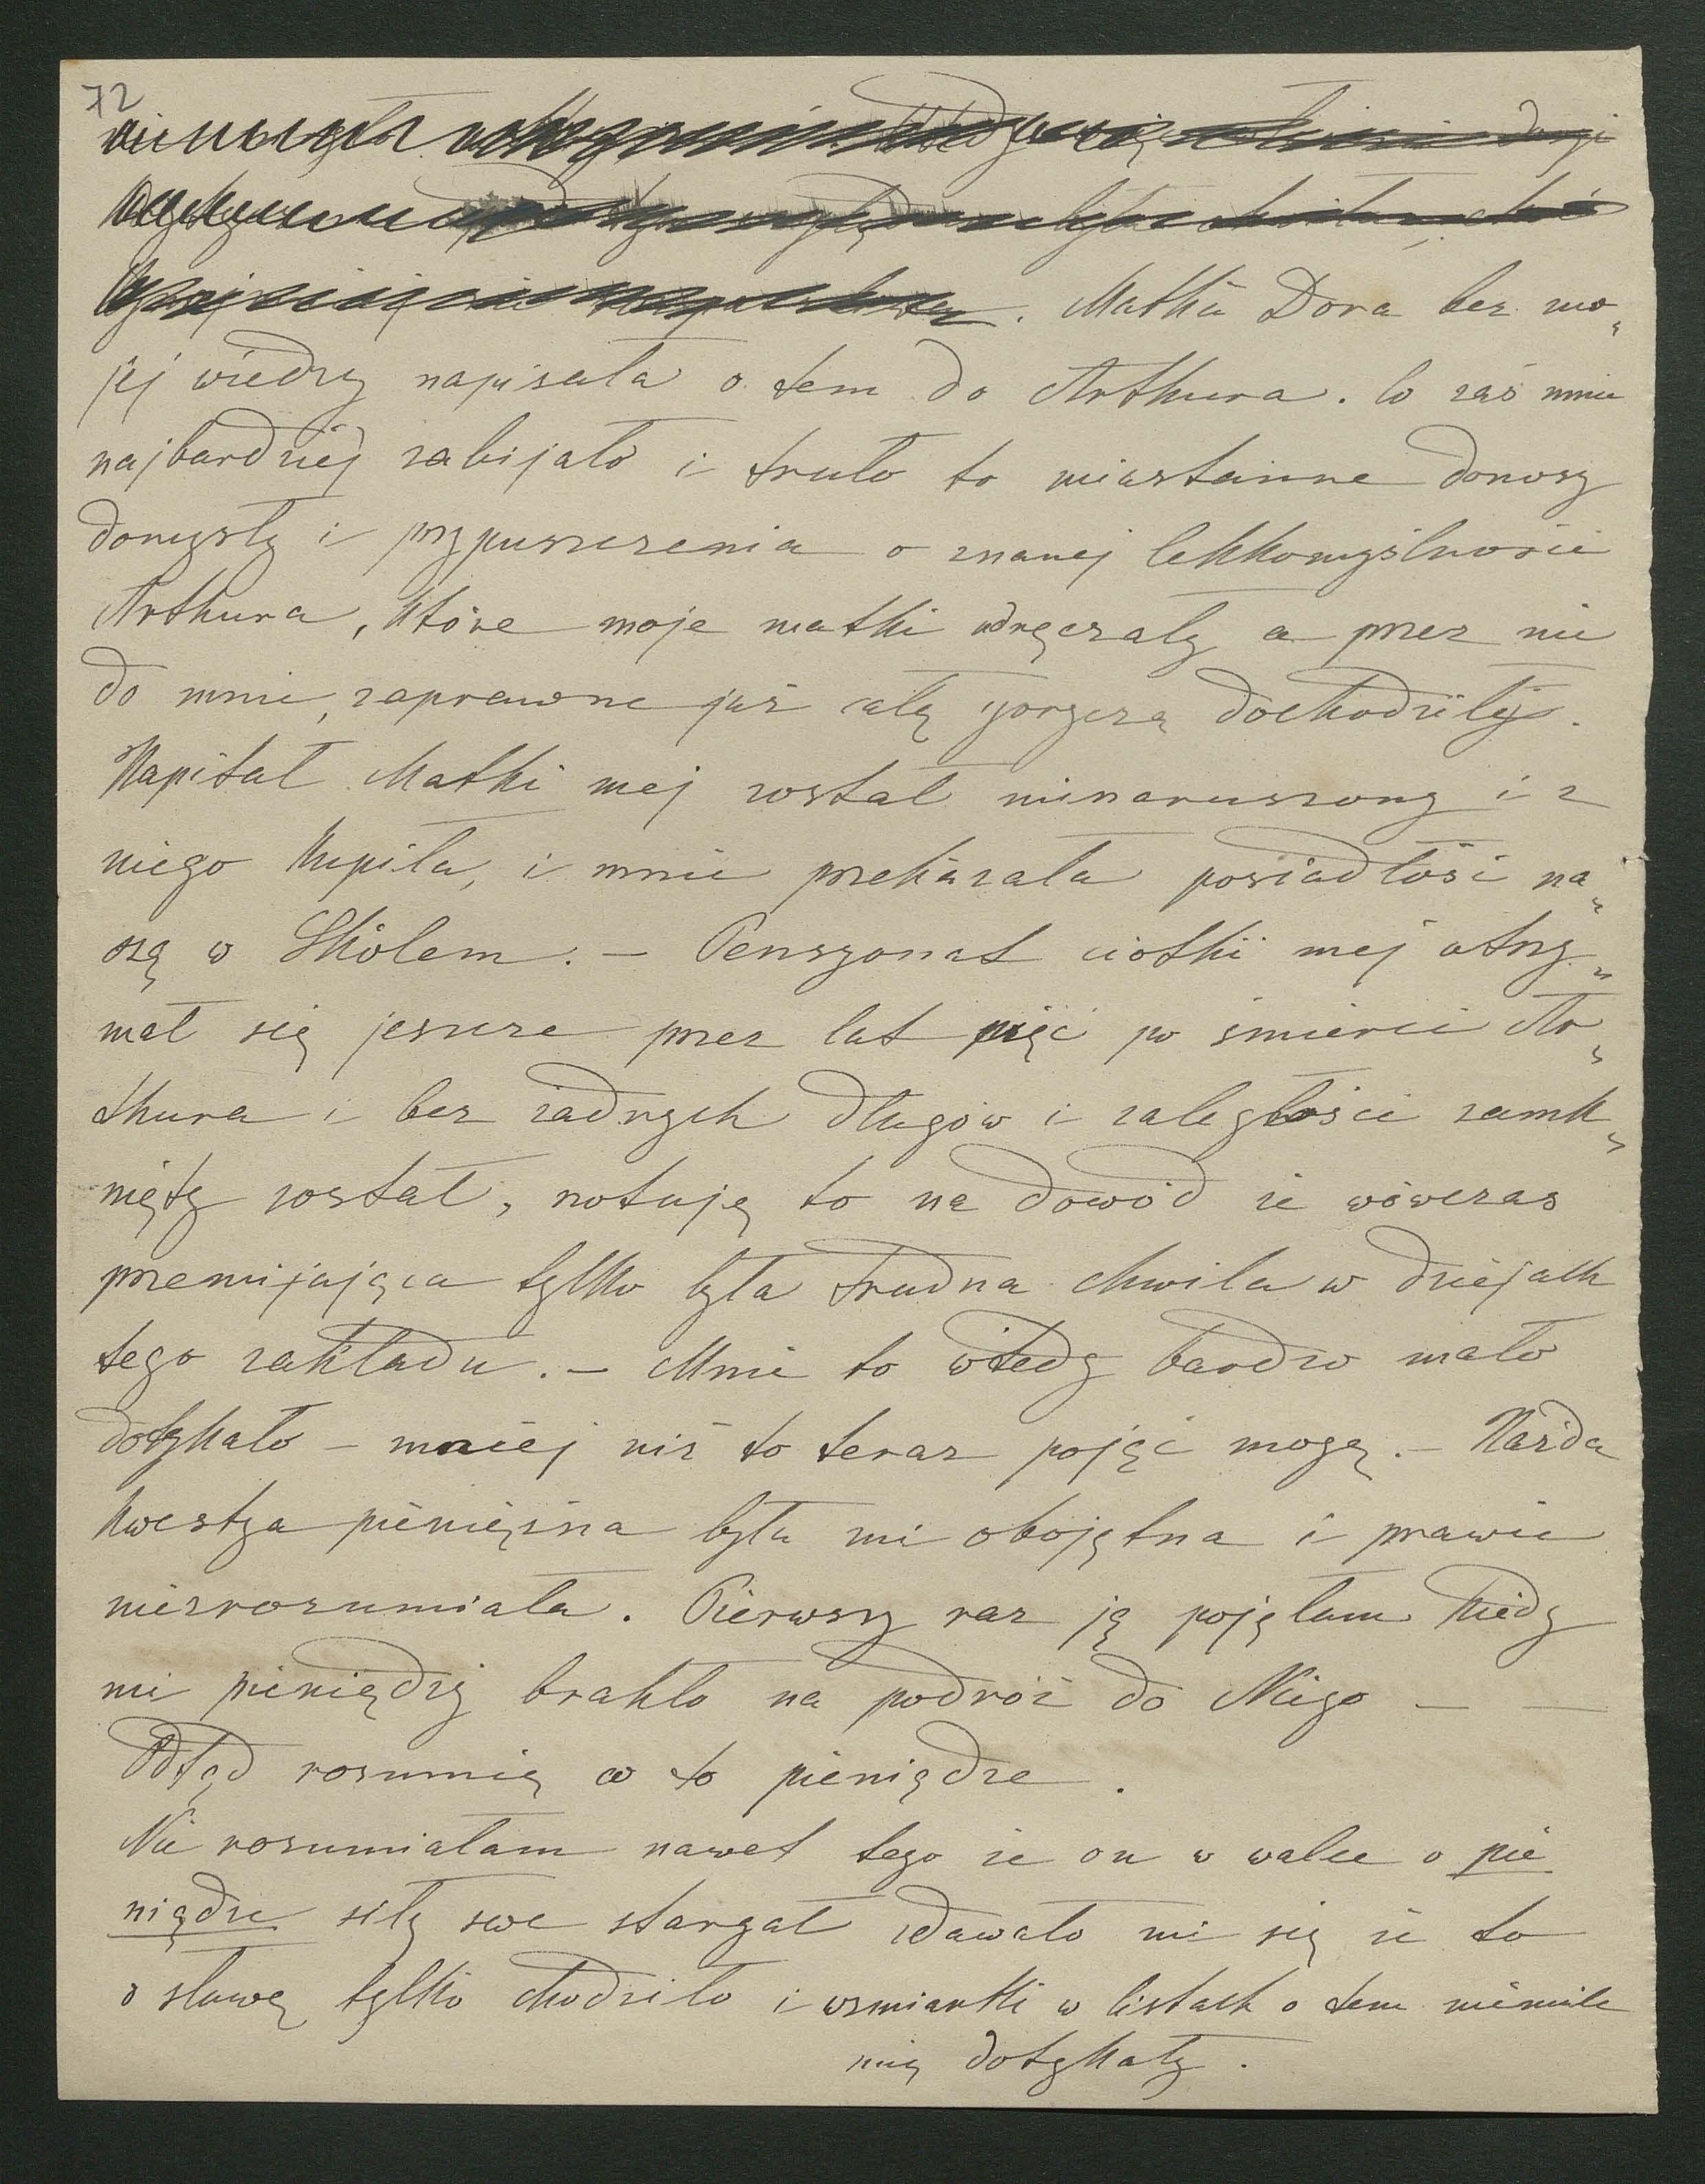 72
. Matka Dora bez mo„
jej wiedzy napisała o tem do Arthura. Co zaś mnie
najbardziej zabijało i truło to nieustanne donosy
domysły i przypuszczenia o znanej lekkomyślności
Arthura, które moje matki udręczały a przez nie
do mnie, zaprawne już całą goryczą dochodziły.
Kapitał Matki mej został nienaruszony i z
niego kupiła, i mnie przekazała posiadłość na„
szą w Skolem. – Pensyonat ciotki mej utrzy„
mał się jeszcze przez lat pięć po śmierci Ar„
thura i bez żadnych długów i zaległości zamk„
nięty został, notuję to na dowód że wówczas
przemijająca tylko była trudna chwila w dziejach
tego zakładu. – Mnie to wtedy bardzo mało
dotykało – mniej niż to teraz pojąć mogę. – Każda
kwestya pieniężna była mi obojętna i prawie
niezrozumiała. Pierwszy raz ją pojęłam kiedy
mi pieniędzy brakło na podróż do Niego — —
Odtąd rozumię co to pieniądze.
Nie rozumiałam nawet tego że on w walce o pie
niądze siły swe stargał zdawało mi się że to
o sławę tylko chodziło i wzmianki w listach o tem niemile
mię dotykały.